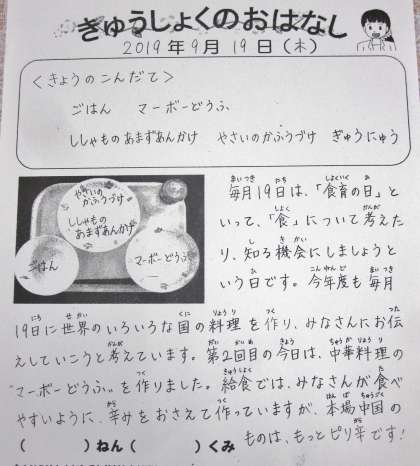 きゅうしょくのおはなし
2019年9月19日(木)
<きょうのこんだて>
ごはん　マーボーどうふ
ししゃものあまずあんかけ　やさいのかふうづけ　ぎゅうにゅう
やさいの
かふうづけ
ししゃもの
あまずあんかけ
ごはん
マーボーどうふ
毎月19日は、「食育の日」と
いって、「食」について考えた
り、知る機会にしましょうと
いう日です。今年度も毎月
19日に世界のいろいろな国の料理を作り、みなさんにお伝
えしていこうと考えています。第2回目の今日は、中華料理の
"マーボーどうふ"を作りました。給食では、みなさんが食べ
やすいように、辛みをおさえて作っていますが、本場中国の
ものは、もっとピリ辛です!
(　　　)ねん(　　　)くみ